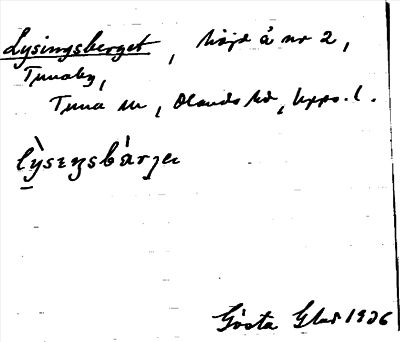 Lysingsberget, höjd å nr 2,
Tunaby,
Tuna sn, Olands hd, Upps. l.
lỳsɪŋsbárjeṭ
Gösta Glas 1926